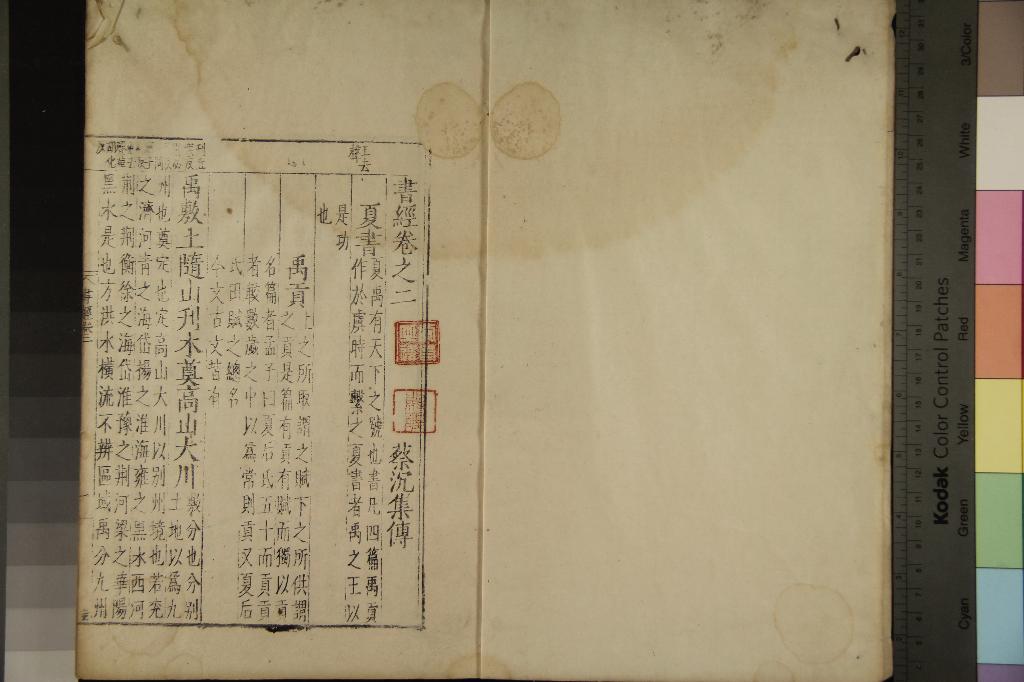 書經卷之二
蔡沉集傳
夏書
夏禹有天下之號也書凡四篇禹貢
作於虞時而繫之夏書者禹之王以
是功
也
禹貢
上之所取謂之賦下之所供謂
之貢是篇有貢有賦而獨以貢
名篇者孟子曰夏后氏五十而貢貢
者較數歲之中以爲常則貢又夏后
氏田賦之總名
今文古文皆有
禹敷土隨山刊木奠高山大川
敷分也分別
土地以爲九
州也奠定也定高山大川以別州境也若兗
之濟河青之海岱揚之淮海雍之黑水西河
荊之荊衡徐之海岱淮豫之荊河梁之華陽
黑水是也方洪水橫流不辨區域禹分九州
Kodak Color Control Patches
Cyan
Green
Yellow
Red
Magenta
White
3/Color